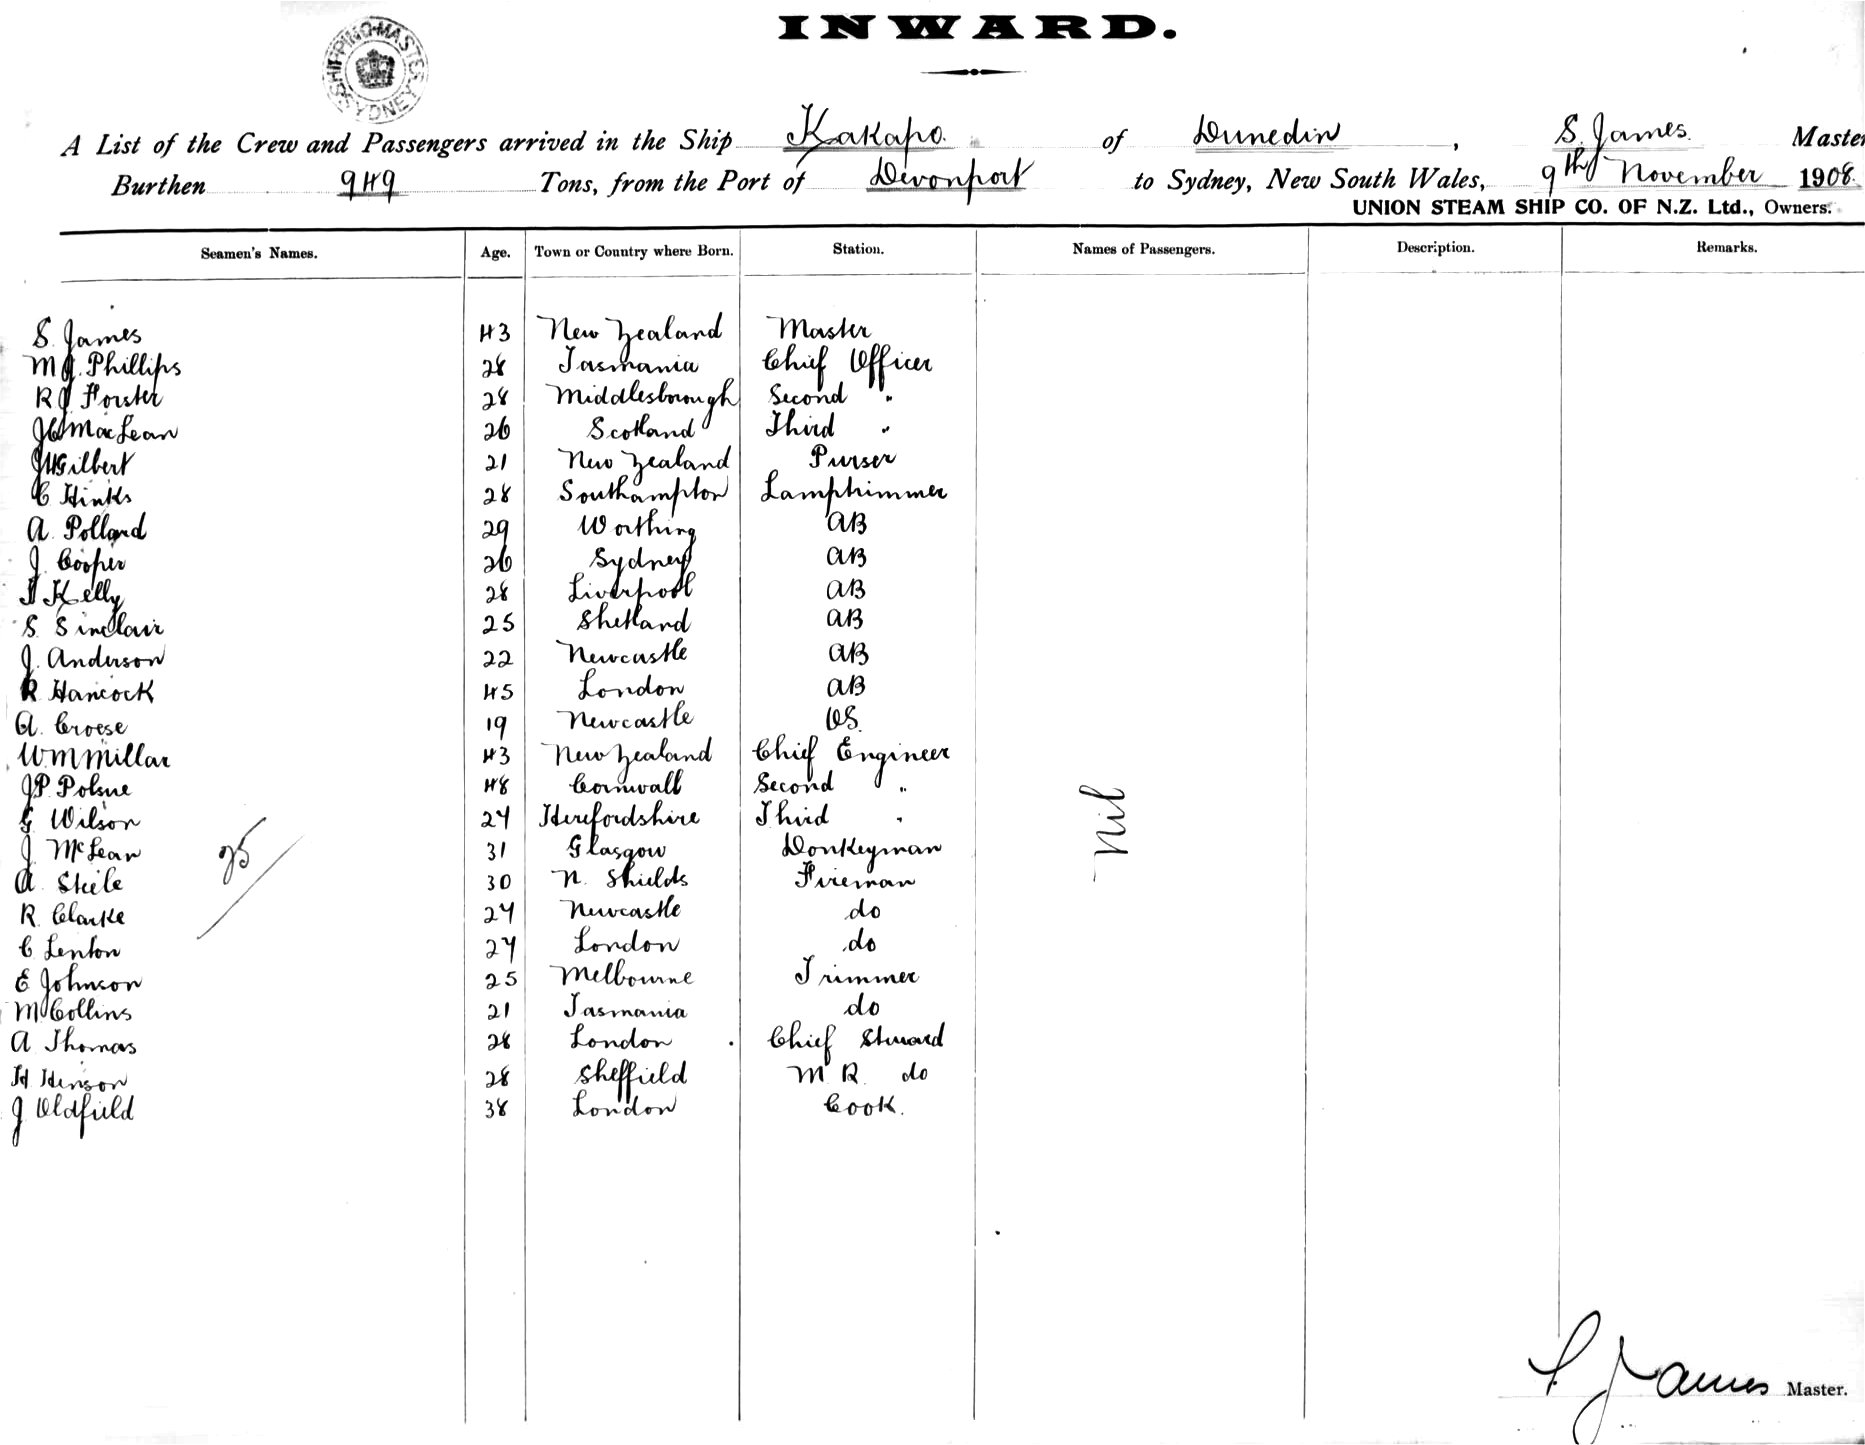 INWARD.
SHIPPING MASTER SYDNEY
A List of the Crew and Passengers arrived in the Ship Kakapo. of Dunedin, S. James. Master
Burthen 949 Tons, from the Port of Devonport to Sydney, New South Wales, 9th November 1908.
UNION STEAM SHIP CO. OF N.Z. Ltd., Owners.
Seamen's Names. Age. Town or Country where Born. Station. Names of Passengers. Description. Remarks.
S. James 43 New Zealand Master
M J. Phillips 28 Tasmania Chief Officer
R J Forster 28 Middlesborough Second "
J C MacLean 26 Scotland Third "
J H Gilbert 21 New Zealand Purser
C Hinks 28 Southampton Lamptrimmer
A. Pollard 29 Worthing AB
J. Cooper 26 Sydney AB
Kelly 28 Liverpool AB
S. Sinclair 25 Shetland AB
J. Anderson 22 Newcastle AB
R Hancock 45 London AB
A. Croese 19 Newcastle OS.
W. M Millar 43 New Zealand Chief Engineer
J P. Polsue 48 Cornwall Second "
G Wilson 24 Herefordshire Third "
J. McLean 31 Glasgow Donkeyman
A. Steele 30 N. Shields Fireman
R. Clarke 24 Newcastle do
C Lenton 24 London do
E Johnson 25 Melbourne Trimmer
M Collins 21 Tasmania do
A Thomas 28 London Chief Steward
H Henson 28 Sheffield M R. do
J Oldfield 38 London Cook.
25
Nil
S. James Master.